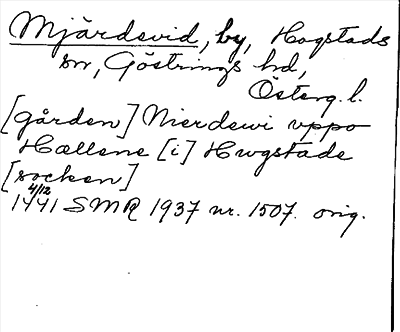 Mjärdevid, by, Hogstads
sn, Göstrings hd,
Österg. l.
[gården] Nierdewi uppo
Hællene [i] Hwgstade
[socken]
4/12
1441 SMR 1937 nr. 1507. orig.